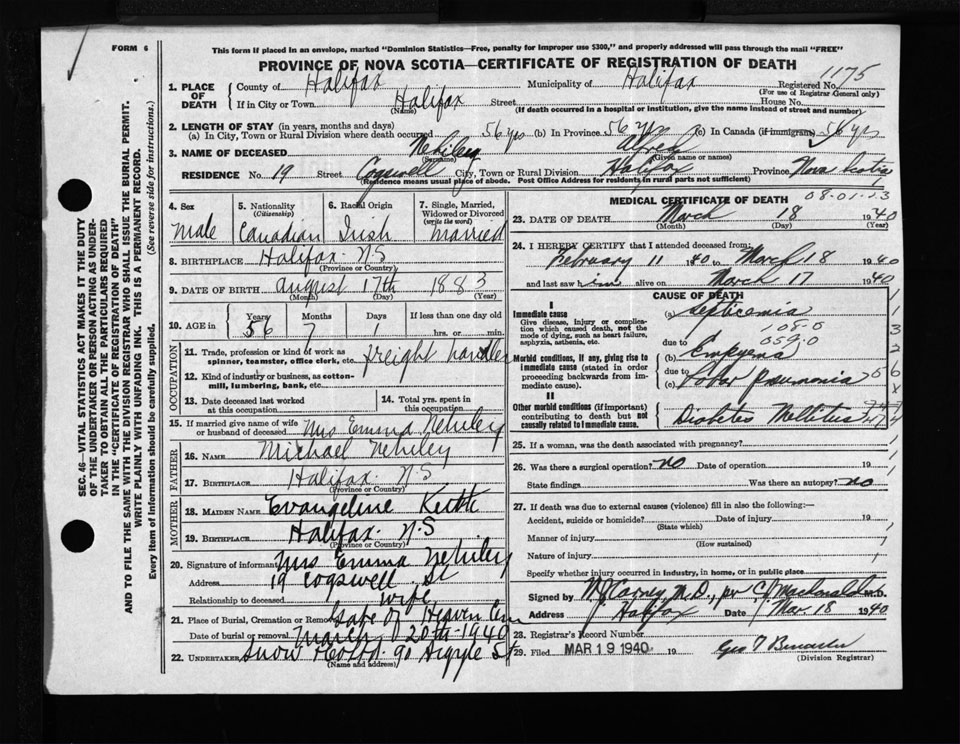 FORM 6
This form if placed in an envelope, marked "Dominion Statistics—Free, penalty for improper use $300," and properly addressed will pass through the mail "FREE"
PROVINCE OF NOVA SCOTIA—CERTIFICATE OF REGISTRATION OF DEATH
1175
1. PLACE OF DEATH County of Halifax Municipality of Halifax Registered No.
(For use of Registrar General only)
If in City or Town Halifax Street House No.
(Name) (If death occurred in a hospital or institution, give the name instead of street and number)
2. LENGTH OF STAY (in years, months and days)
(a) In City, Town or Rural Division where death occurred 56 yrs (b) In Province 56 yrs (c) In Canada (if immigrant) 56 yrs
3. NAME OF DECEASED Nehiley Alfred
(Surname) (Given name or names)
RESIDENCE No. 19 Street Cogswell City, Town or Rural Division Halifax Province Nova Scotia
(Residence means usual place of abode. Post Office Address for residents in rural parts not sufficient)
4. Sex Male
5. Nationality (Citizenship) Canadian
6. Racial Origin Irish
7. Single, Married, Widowed or Divorced (write the word) Married
8. BIRTHPLACE Halifax N.S
(Province or Country)
9. DATE OF BIRTH August 17th 1883
(Month) (Day) (Year)
10. AGE in Years 56 Months 7 Days 1 If less than one day old hrs. or min.
OCCUPATION
11. Trade, profession or kind of work as spinner, teamster, office clerk, etc. freight handler
12. Kind of industry or business, as cotton-mill, lumbering, bank, etc.
13. Date deceased last worked at this occupation
14. Total yrs. spent in this occupation
15. If married give name of wife or husband of deceased Mrs Emma Nehiley
FATHER
16. NAME Michael Nehiley
17. BIRTHPLACE Halifax N.S
(Province or Country)
MOTHER
18. MAIDEN NAME Evangeline
19. BIRTHPLACE Halifax N.S
(Province or Country)
20. Signature of informant Mrs Emma Nehiley
Address 19 Cogswell St
Relationship to deceased wife
21. Place of Burial, Cremation or Removal Gate of Heaven Cem
Date of burial or removal March 20th-1940
22. UNDERTAKER Snow 90 Argyle St
(Name and address)
MEDICAL CERTIFICATE OF DEATH
08-01-13
23. DATE OF DEATH March 18 1940
(Month) (Day) (Year)
24. I HEREBY CERTIFY that I attended deceased from:
February 11 1940 to March 18 1940
and last saw him alive on March 17 1940
CAUSE OF DEATH
I
Immediate cause
Give disease, injury or complication which caused death, not the mode of dying, such as heart failure, asphyxia, asthenia, etc.
(a) Septicemia
108-0
059-0
due to
(b) Empyema
Morbid conditions, if any, giving rise to immediate cause (stated in order proceeding backwards from immediate cause)
due to
(c) Lobar pneumonia
II
Other morbid conditions (if important) contributing to death but not causally related to immediate cause.
Diabetes Mellitus
25. If a woman, was the death associated with pregnancy?
26. Was there a surgical operation? no Date of operation 19
State findings Was there an autopsy? no
27. If death was due to external causes (violence) fill in also the following:—
Accident, suicide or homicide? Date of injury 19
(State which)
Manner of injury
(How sustained)
Nature of injury
Specify whether injury occurred in industry, in home, or in public place
Signed by M.D., per Macdonald M.D.
Address Halifax Date Mar. 18 1940
28. Registrar's Record Number
29. Filed MAR 19 1940 19 Geo T
(Division Registrar)
SEC. 46—VITAL STATISTICS ACT MAKES IT THE DUTY
OF THE UNDERTAKER OR PERSON ACTING AS UNDER-
TAKER TO OBTAIN ALL THE PARTICULARS REQUIRED
IN THE "CERTIFICATE OF REGISTRATION OF DEATH"
AND TO FILE THE SAME WITH THE DIVISION REGISTRAR WHO SHALL ISSUE THE BURIAL PERMIT.
WRITE PLAINLY WITH UNFADING INK. THIS IS A PERMANENT RECORD.
Every item of Information should be carefully supplied. (See reverse side for instructions.)